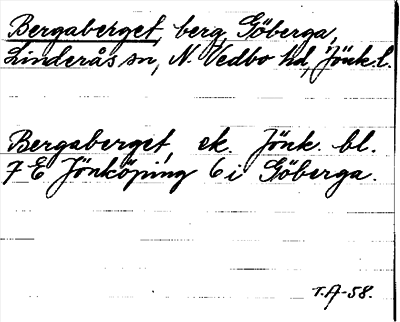 Bergaberget, berg, Göberga,
Linderås sn, N. Vedbo hd, Jönk. l.
Bergaberget, ek. Jönk. bl.
7 E Jönköping 6 i Göberga.
T.A-58.